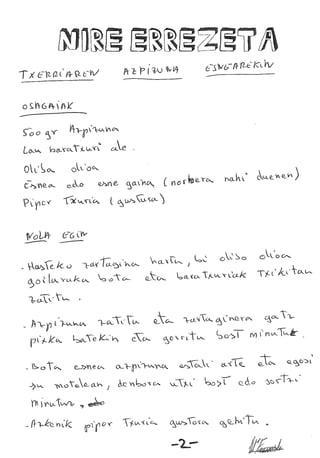 NIRE ERREZETA
TXERRIAREN AZPIZUNA ESNEAREKIN
OSAGAIAK
500 gr Azpizuna
Lau baratxuri ale.
Oliba olioa
Esnea edo esne gaina (norbera nahi duenen)
Piper Txuria (gustura)
NOLA EGIN
- Hasteko zartagina hartu, bi olibo olioa
goilaruka bota eta baratxuriak txikitan
zatitu.
- Azpizuna zatitu eta zartaginera gatz
pixka batekin eta gorritu bost minutuz.
- Bota esnea azpizuna estali arte eta egosi
su motelean, denbora utxi bost edo sortzi
minutuz.
- Azkenik piper txuria gustora gehitu.
-2-